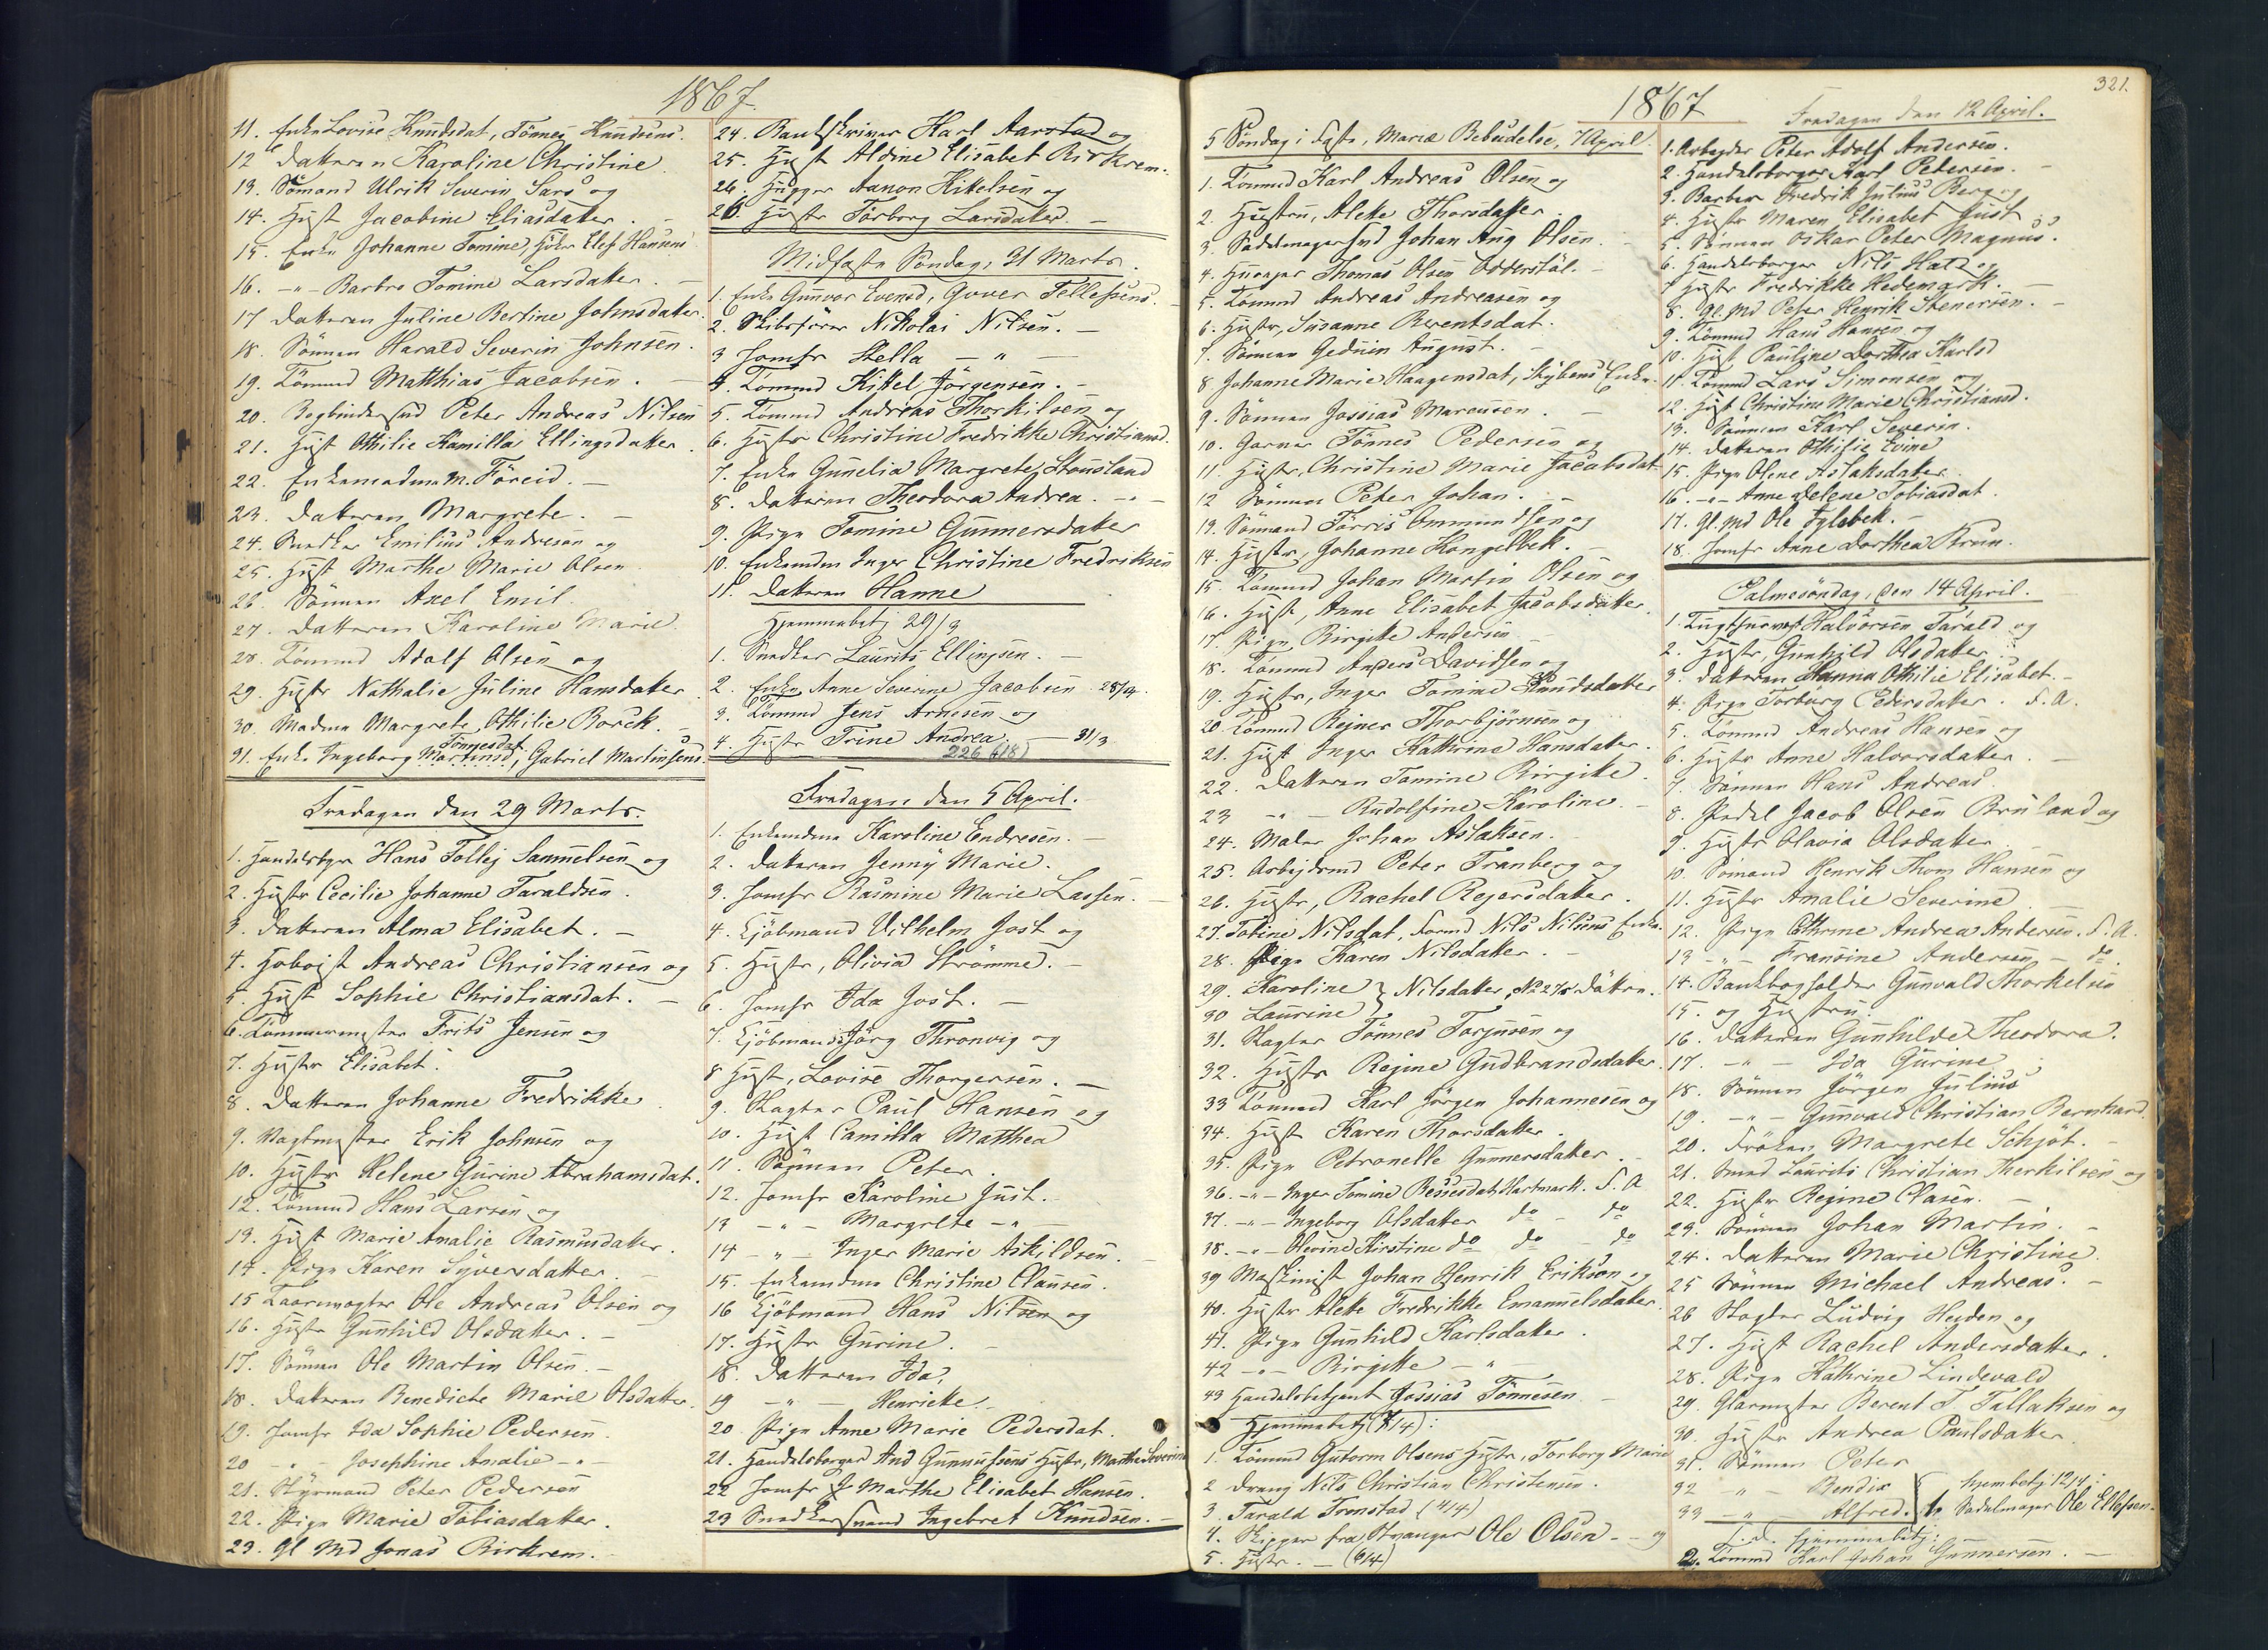 1867.
11. Enke Lovise Knudsdat, Tönnes Knudsens.
12 Datteren Karoline Christine
13. Sömand Ulrik Severin Sars og
14. Hust Jacobine Eliasdatter.
15. Enke Johanne Tomine, Elef Hansens
16. -"- Barbro Tomine Larsdatter. -
17 Datteren Juline Bertine Johnsdatter.
18. Sönnen Harald Severin Johnsen.
19. Tömmd Matthias Jacobsen. -
20. Bogbindersvd Peter Andreas Nilsen
21. Hust Othilie Kamilla Ellingsdatter.
22. Enkemadme M. Föreid. -
23. Datteren Margrete. -
24. Snedker Emilius Andresen og
25. Hust Marthe Marie Olsen
26. Sönnen Axel Emil.
27. Datteren Karoline Marie.
28. Tömmd Adolf Olsen og
29. Hustr Nathalie Juline Hansdatter
30. Madme Margrete Othilie Rorek.
Tönnesdat
31. Enke Ingeborg Martinsd, Gabriel Martinsens.
Fredagen den 29 Marts.
1. Handelsbgr Hans Tollej Samuelsen og
2. Hustr Cecilie Johanne Taraldsen.
3. Datteren Alma Elisabet. -
4. Hoboist Andreas Christiansen og
5. Hust Sophie Christiansdat. -
6. Tömmermester Frits Jensen og
7. Hustr Elisabet.
8. Datteren Johanne Fredrikke
9. Vagtmester Erik Johnsen og
10. Hustr Helene Gurine Abrahamsdat.
12. Tömmd Hans Larsen og
13. Hust Marie Amalie Rasmusdatter.
14. Pige Karen Syversdatter. -
15 Taarnvogter Ole Andreas Olsen og
16. Hustr Gunhild Olsdatter. -
17. Sönnen Ole Martin Olsen. -
18. Datteren Benedicte Marie Olsdatter.
19. Jomfr Ida Sophie Pedersen.
20 -"- Josephine Amalie -"-
21. Styrmand Peter Pedersen
22. Pige Marie Tobiasdatter.
23. Gl Md Jonas Birkrem. -
24. Bankskriver Karl Aarstad og
25. Hust Aldine Elisabet Birkrem.
26. Hugger Aanon Kittelsen og
26. Hustr Torborg Larsdatter. -
Midfaste Söndag, 31 Marts.
1. Enke Gunvor Evensd, Gover Tellefsens.
2. Skibsförer Nikolai Nilsen. -
3 Jomfr Stella - " -
4. Tömmd Kittel Jörgensen. -
5. Tömmd Andreas Thorkilsen og
6. Hustr Christine Fredrikke Christiansd.
7. Enke Gunelia Margrete Stousland
8. Datteren Theodora Andrea. -
9. Pige Tomine Gunnersdatter
10. Enkemdm Inger Christine Fredriksen
11. Datteren Hanne
Hjemmebetj 29/3
1. Snedker Laurits Ellingsen. -
2. Enke Anne Severine Jacobsen 28/4.
3. Tömmd Jens Arnesen og
4. Hustr Trine Andrea. - 31/3
226 (18)
Fredagen den 5 April.
1. Enkemdme Karoline Endresen. -
2. Datteren Jenny Marie.
3. Jomfr Rasmine Marie Lassen. -
4. Kjöbmand Vilhelm Jost og
5. Hustr, Olivia Strömme. -
6. Jomfr Ida Jost. -
7. Kjöbmand Jörg Thronvig og
8 Hust, Lovise Thorgersen. -
9. Slagter Paul Hansen og
10. Hust Camilla Matthea
11. Sönnen Peter.
12. Jomfr Karoline Just. -
13 -"- Margrete -"-
14 -"- Inger Marie Askildsen. -
15. Enkemdme Christine Clausen.
16 Kjöbmand Hans Nilsen og
17. Hustr Gurine. -
18. Datteren Ida.
19 -"- Henriette. -
20. Pige Anne Marie Pedersdat.
21. Handelsborger And Gunnufsens Hustr, Marthe Severine
22 Jomfr Marthe Elisabet Hansen.
23 Snedkersvend Ingebret Knudsen. -
1867
321.
5 Söndag i Faste, Mariæ Bebudelse, 7 April.
1. Tömmd Karl Andreas Olsen og
2. Hustru, Aleke Thorsdatter
3. Sadelmagersvd Johan Aug Olsen. -
4. Thomas Olsen Odderstøl. -
5. Tömmd Andreas Andreasen og
6. Hustr, Susanne Berentsdat.
7. Sönnen Geduin August. -
8 Johanne Marie Haagensdat, Enke.
9. Sönnen Jossias Marcussen. -
10. Garver Tönnes Pedersen og
11 Hustr. Christine Marie Jacobsdat
12 Sönnen Peter Johan. -
13. Sömand Törris Ommundsen og
14. Hustr, Johanne Kongelbek. -
15. Tömmd Johan Martin Olsen og
16. Hust, Anne Elisabet Jacobsdatter.
17. Pige Birgitte Andersen -
18. Tömmd Anders Davidsen og
19. Hustr, Inger Tomine Knudsdatter
20 Tömmd Rejner Thorbjörnsen og
21. Hust Inger Kathrine Hansdatter.
22. Datteren Tomine Birgitte.
23 -"- Rudolfine Karoline. -
24. Maler Johan Aslaksen.
25. Arbejdsmd Peter Tranberg og
26. Hustr, Rachel Rejersdatter.
27. Tobine Nilsdat, Nils Nilsens Enke.
28. Pige Karen Nilsdatter. -
29. Karoline } Nilsdatter, No 27s Dötre.
30 Laurine }
31. Slagter Tönnes Torjusen og
32. Hustr Regine Gudbrandsdatter.
33 Tömmd Karl Jörgen Johannesen og
34. Hust Karen Thorsdatter.
35. Pige Petronelle Gunnersdatter. -
36. -"- Inger Tomine Bessesdat, Hartmark. F. A.
37. -"- Ingeborg Olsdatter do - do
38. -"- Olevine Kirstine do do - do
39 Maskinist Johan Henrik Erikson og
40. Hustr Aleke Fredrikke Emanuelsdatter.
41. Pige Gunhild Karlsdatter.
42 -"- Birgitte -"-
43 Handelsbetjent Jossias Tönnesen -
Hjemmebetj (7/4):
1. Tömmd Gutorm Olsens Hustr, Torborg Marie
2 Dreng Nils Christian Christensen.
3. Tarald Tronstad (4/4)
4. Skipper fra Stavanger Ole Olsen - og
5. Hustr. - (6/4)
Fredagen den 12 April.
1. Arbejder Peter Adolf Andersen.
2. Handelsborger Karl Petersen. -
3. Barber Fredrik Julius Berg og
4. Hustr Maren Elisabet Just
5. Sönnen Oskar Peter Magnus.
6. Handelsborger Nils Hatz og
7 Hustr Fredrikke Hedemark. -
8. Gl. Md Peter Henrik Stenersen. -
9. Tömmd Hans Hansen og
10. Hust Pauline Dorthea Karlsd
11. Tömmd Lars Simonsen og
12. Hust Christine Marie Christiansd.
13. Sönnen Karl Severin.
14. Datteren Othilie Evine
15. Pige Olene Aslaksdatter.
16. -"- Anne Helene Tobiasdat.
17. Gl. Md Ole Fglebek. -
18. Jomfr Anne Dorthea Krun.
Palmesöndag, den 14 April.
1. Halvorsen Tarald og
2. Hustr, Gunhild Olsdatter
3. Datteren Hanna Othilie Elisabet. -
4. Pige Torborg Pedersdatter. F. A.
5. Tömmd Andreas Hansen og
6. Hustr Anne Halvorsdatter. -
7. Sönnen Hans Andreas.
8. Pedel Jacob Olsen Bruland og
9. Hustr Olavia Olsdatter. -
10. Sömand Henrik Thom Hansen og
11. Hustr Amalie Severine. -
12. Pige Cthrine Andrea Andersen. F. A.
13 -"- Fransine Andersen - do.
14. Bankbogholder Gunvald Thorkelsen
15. og Hustru.
16. Datteren Gunhilde Theodora.
17. -"- Ida Gurine
18. Sönnen Jörgen Julius
19. -"- Gunvald Christian Bernhard.
20. Fröken Margrete Schjöt. -
21. Smed Laurits Christian Therkilsen og
22. Hustr Regine Clasen. -
23. Sönnen Johan Martin. -
24. Datteren Marie Christine
25 Sönnen Michael Andreas. -
26 Slagter Ludvig Heiden og
27. Hust Rachel Andersdatter.
28. Pige Kathrine Lindevald
29. Glarmester Berent T. Tallaksen og
30. Hustr Andrea Paulsdatter.
31. Sönnen Peter
32 -"- Bendix
33 -"- Alfred.
hjembetj 12/4:
1. Sadelmager Ole Ellefsen.
F. d. hjemmebetj:
2. Tömmd Karl Johan Gunnersen. -